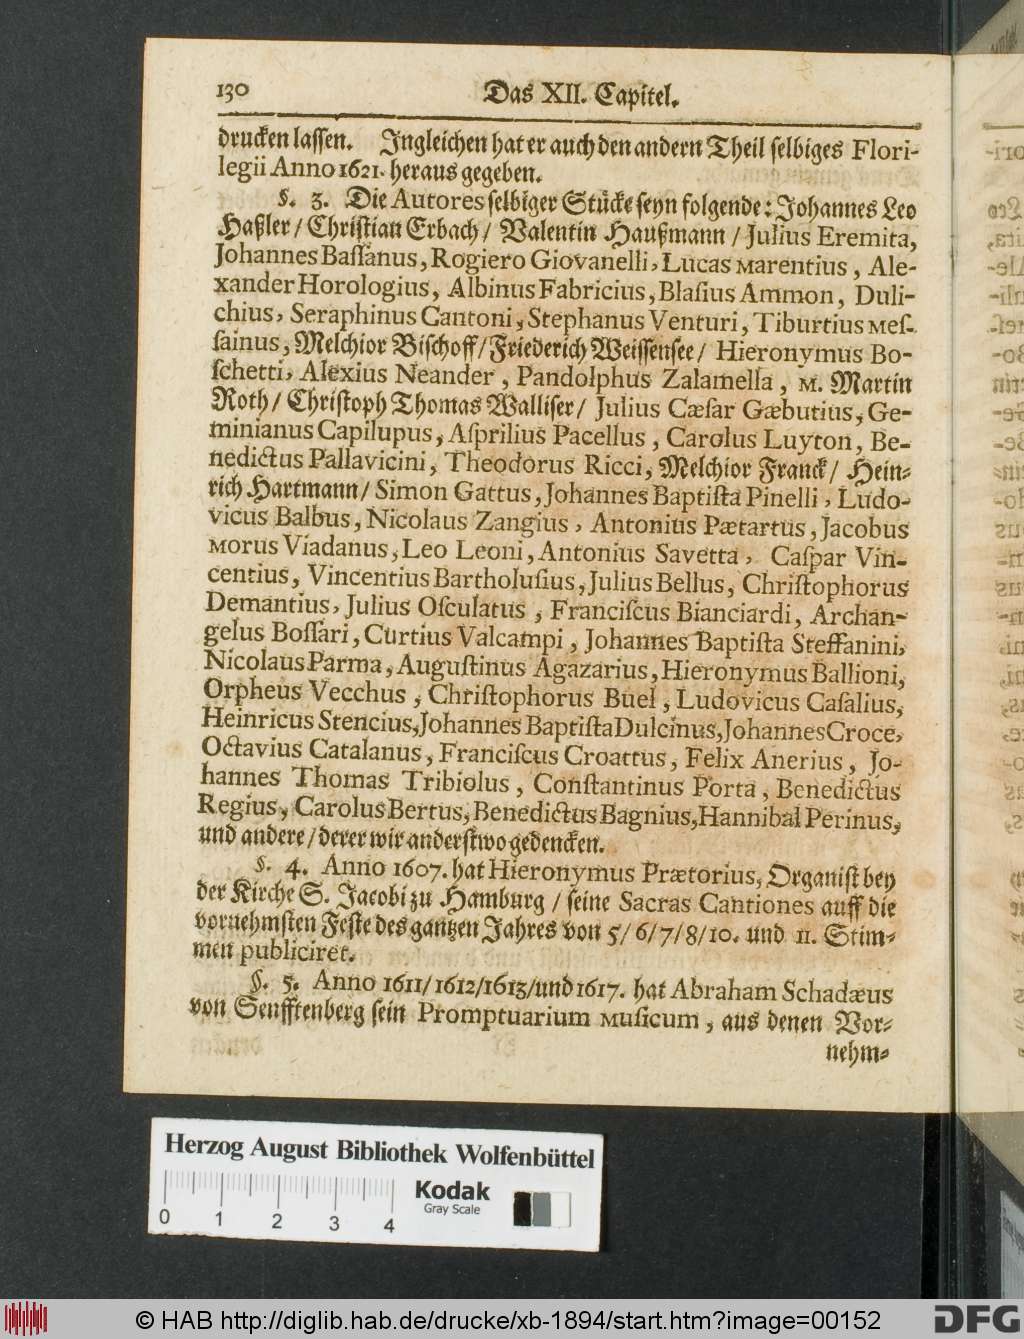 130 Das XII. Capitel.
drucken lassen. Ingleichen hat er auch den andern Theil selbiges Flori-
legii Anno 1621. heraus gegeben.
§. 3. Die Autores selbiger Stücke seyn folgende: Johannes Leo
Haßler / Christian Erbach / Valentin Haußmann / Julius Eremita,
Johannes Baſſanus, Rogiero Giovanelli, Lucas Marentius, Ale-
xander Horologius, Albinus Fabricius, Blaſius Ammon, Duli-
chius, Seraphinus Cantoni, Stephanus Venturi, Tiburtius Meſ-
ſainus, Melchior Bischoff / Friederich Weissensee / Hieronymus Bo-
ſchetti, Alexius Neander, Pandolphus Zalamella, M. Martin
Roth / Christoph Thomas Walliser / Julius Cæſar Gæbutius, Ge-
minianus Capilupus, Aſprilius Pacellus, Carolus Luyton, Be-
nedictus Pallavicini, Theodorus Ricci, Melchior Franck / Hein-
rich Hartmann / Simon Gattus, Johannes Baptiſta Pinelli, Ludo-
vicus Balbus, Nicolaus Zangius, Antonius Pætartus, Jacobus
Morus Viadanus, Leo Leoni, Antonius Savetta, Caſpar Vin-
centius, Vincentius Bartholuſius, Julius Bellus, Chriſtophorus
Demantius, Julius Oſculatus, Franciſcus Bianciardi, Archan-
gelus Boſſari, Curtius Valcampi, Johannes Baptiſta Steffanini,
Nicolaus Parma, Auguſtinus Agazarius, Hieronymus Ballioni,
Orpheus Vecchus, Chriſtophorus Buel, Ludovicus Caſalius,
Heinricus Stencius, Johannes Baptiſta Dulcinus, Johannes Croce,
Octavius Catalanus, Franciſcus Croattus, Felix Anerius, Jo-
hannes Thomas Tribiolus, Conſtantinus Porta, Benedictus
Regius, Carolus Bertus, Benedictus Bagnius, Hannibal Perinus,
und andere / derer wir anderstwo gedencken.
§. 4. Anno 1607. hat Hieronymus Prætorius, Organist bey
der Kirche S. Jacobi zu Hamburg / seine Sacras Cantiones auff die
vornehmsten Feste des gantzen Jahres von 5/ 6/ 7/ 8/ 10. und 11. Stim-
men publiciret.
§. 5. Anno 1611/ 1612/ 1613/ und 1617. hat Abraham Schadæus
von Seufftenberg sein Promptuarium Muſicum, aus denen Vor-
nehm-
Herzog August Bibliothek Wolfenbüttel
Kodak
Gray Scale
0 1 2 3 4
© HAB http://diglib.hab.de/drucke/xb-1894/start.htm?image=00152
DFG